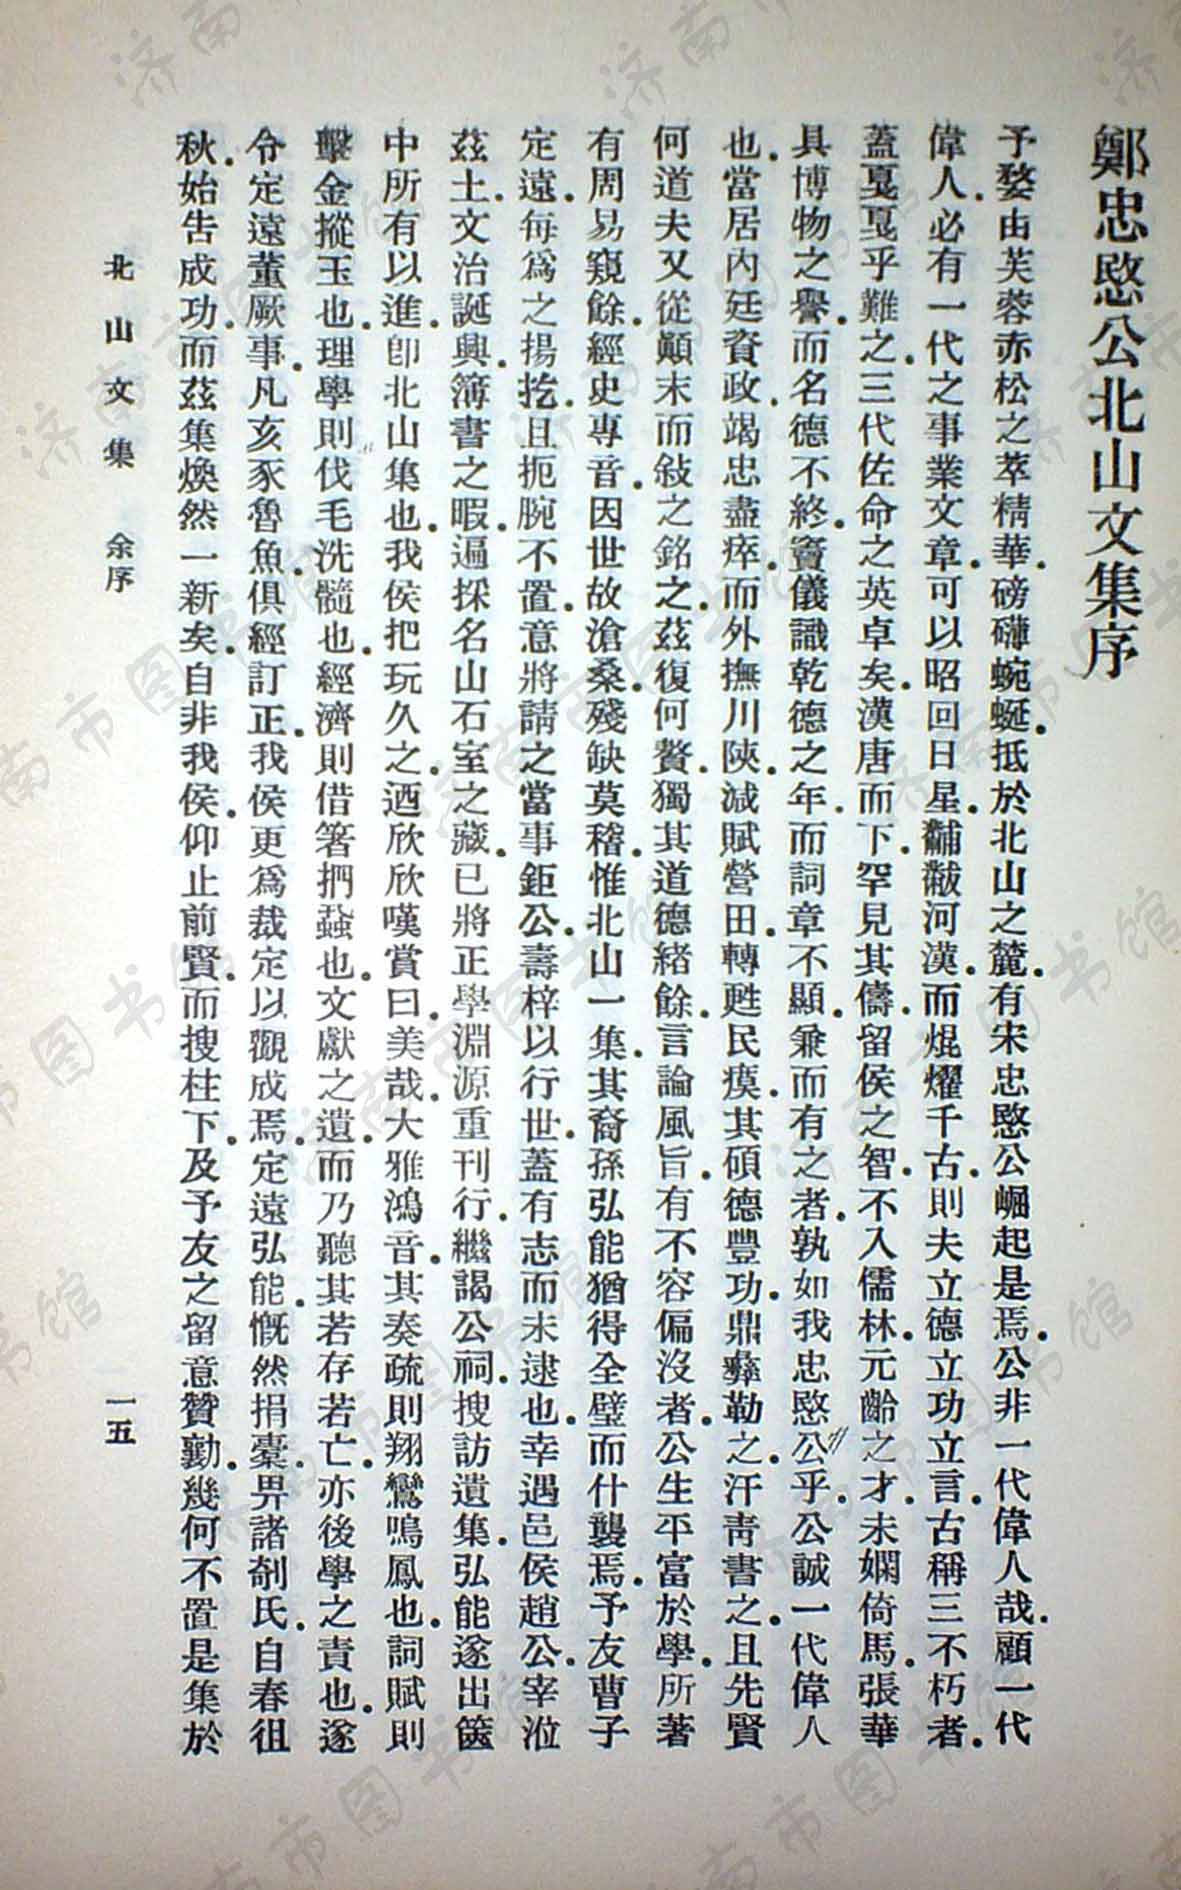 鄭忠愍公北山文集序
予婺由芙蓉赤松之萃精華.磅礴蜿蜒.抵於北山之麓.有宋忠愍公崛起是焉.公非一代偉人哉.顧一代
偉人.必有一代之事業文章.可以昭回日星.黼黻河漢.而焜燿千古.則夫立德立功立言.古稱三不朽者.
蓋戛戛乎難之.三代佐命之英卓矣.漢唐而下.罕見其儔.留侯之智.不入儒林.元齡之才.未嫻倚馬.張華
具博物之譽.而名德不終.竇儀識乾德之年.而詞章不顯.兼而有之者.孰如我忠愍公乎.公誠一代偉人
也.當居內廷資政.竭忠盡瘁.而外撫川陝.減賦營田.轉甦民瘼.其碩德豐功.鼎彝勒之.汗靑書之.且先賢
何道夫又從顚末而敍之銘之.茲復何贅.獨其道德緒餘.言論風旨.有不容偏沒者.公生平富於學.所著
有周易窺餘.經史專音.因世故滄桑.殘缺莫稽.惟北山一集.其裔孫弘能猶得全璧而什襲焉.予友曹子
定遠.每爲之揚扢.且扼腕不置.意將請之當事鉅公.壽梓以行世.蓋有志而未逮也.幸遇邑侯趙公.宰涖
茲土.文治誕興.簿書之暇.遍採名山石室之藏.已將正學淵源重刊行.繼謁公祠.搜訪遺集.弘能遂出篋
中所有以進.卽北山集也.我侯把玩久之.迺欣欣嘆賞曰.美哉.大雅鴻音.其奏疏則翔鸞鳴鳳也.詞賦則
擊金摐玉也.理學則伐毛洗髓也.經濟則借箸捫蝨也.文獻之遺.而乃聽其若存若亡.亦後學之責也.遂
令定遠董厥事.凡亥豕魯魚.俱經訂正.我侯更爲裁定以觀成焉.定遠弘能.慨然捐橐.畀諸剞氏.自春徂
秋.始告成功.而茲集煥然一新矣.自非我侯.仰止前賢.而搜柱下.及予友之留意贊勷.幾何不置是集於
北山文集 余序 一五
济南市图书馆